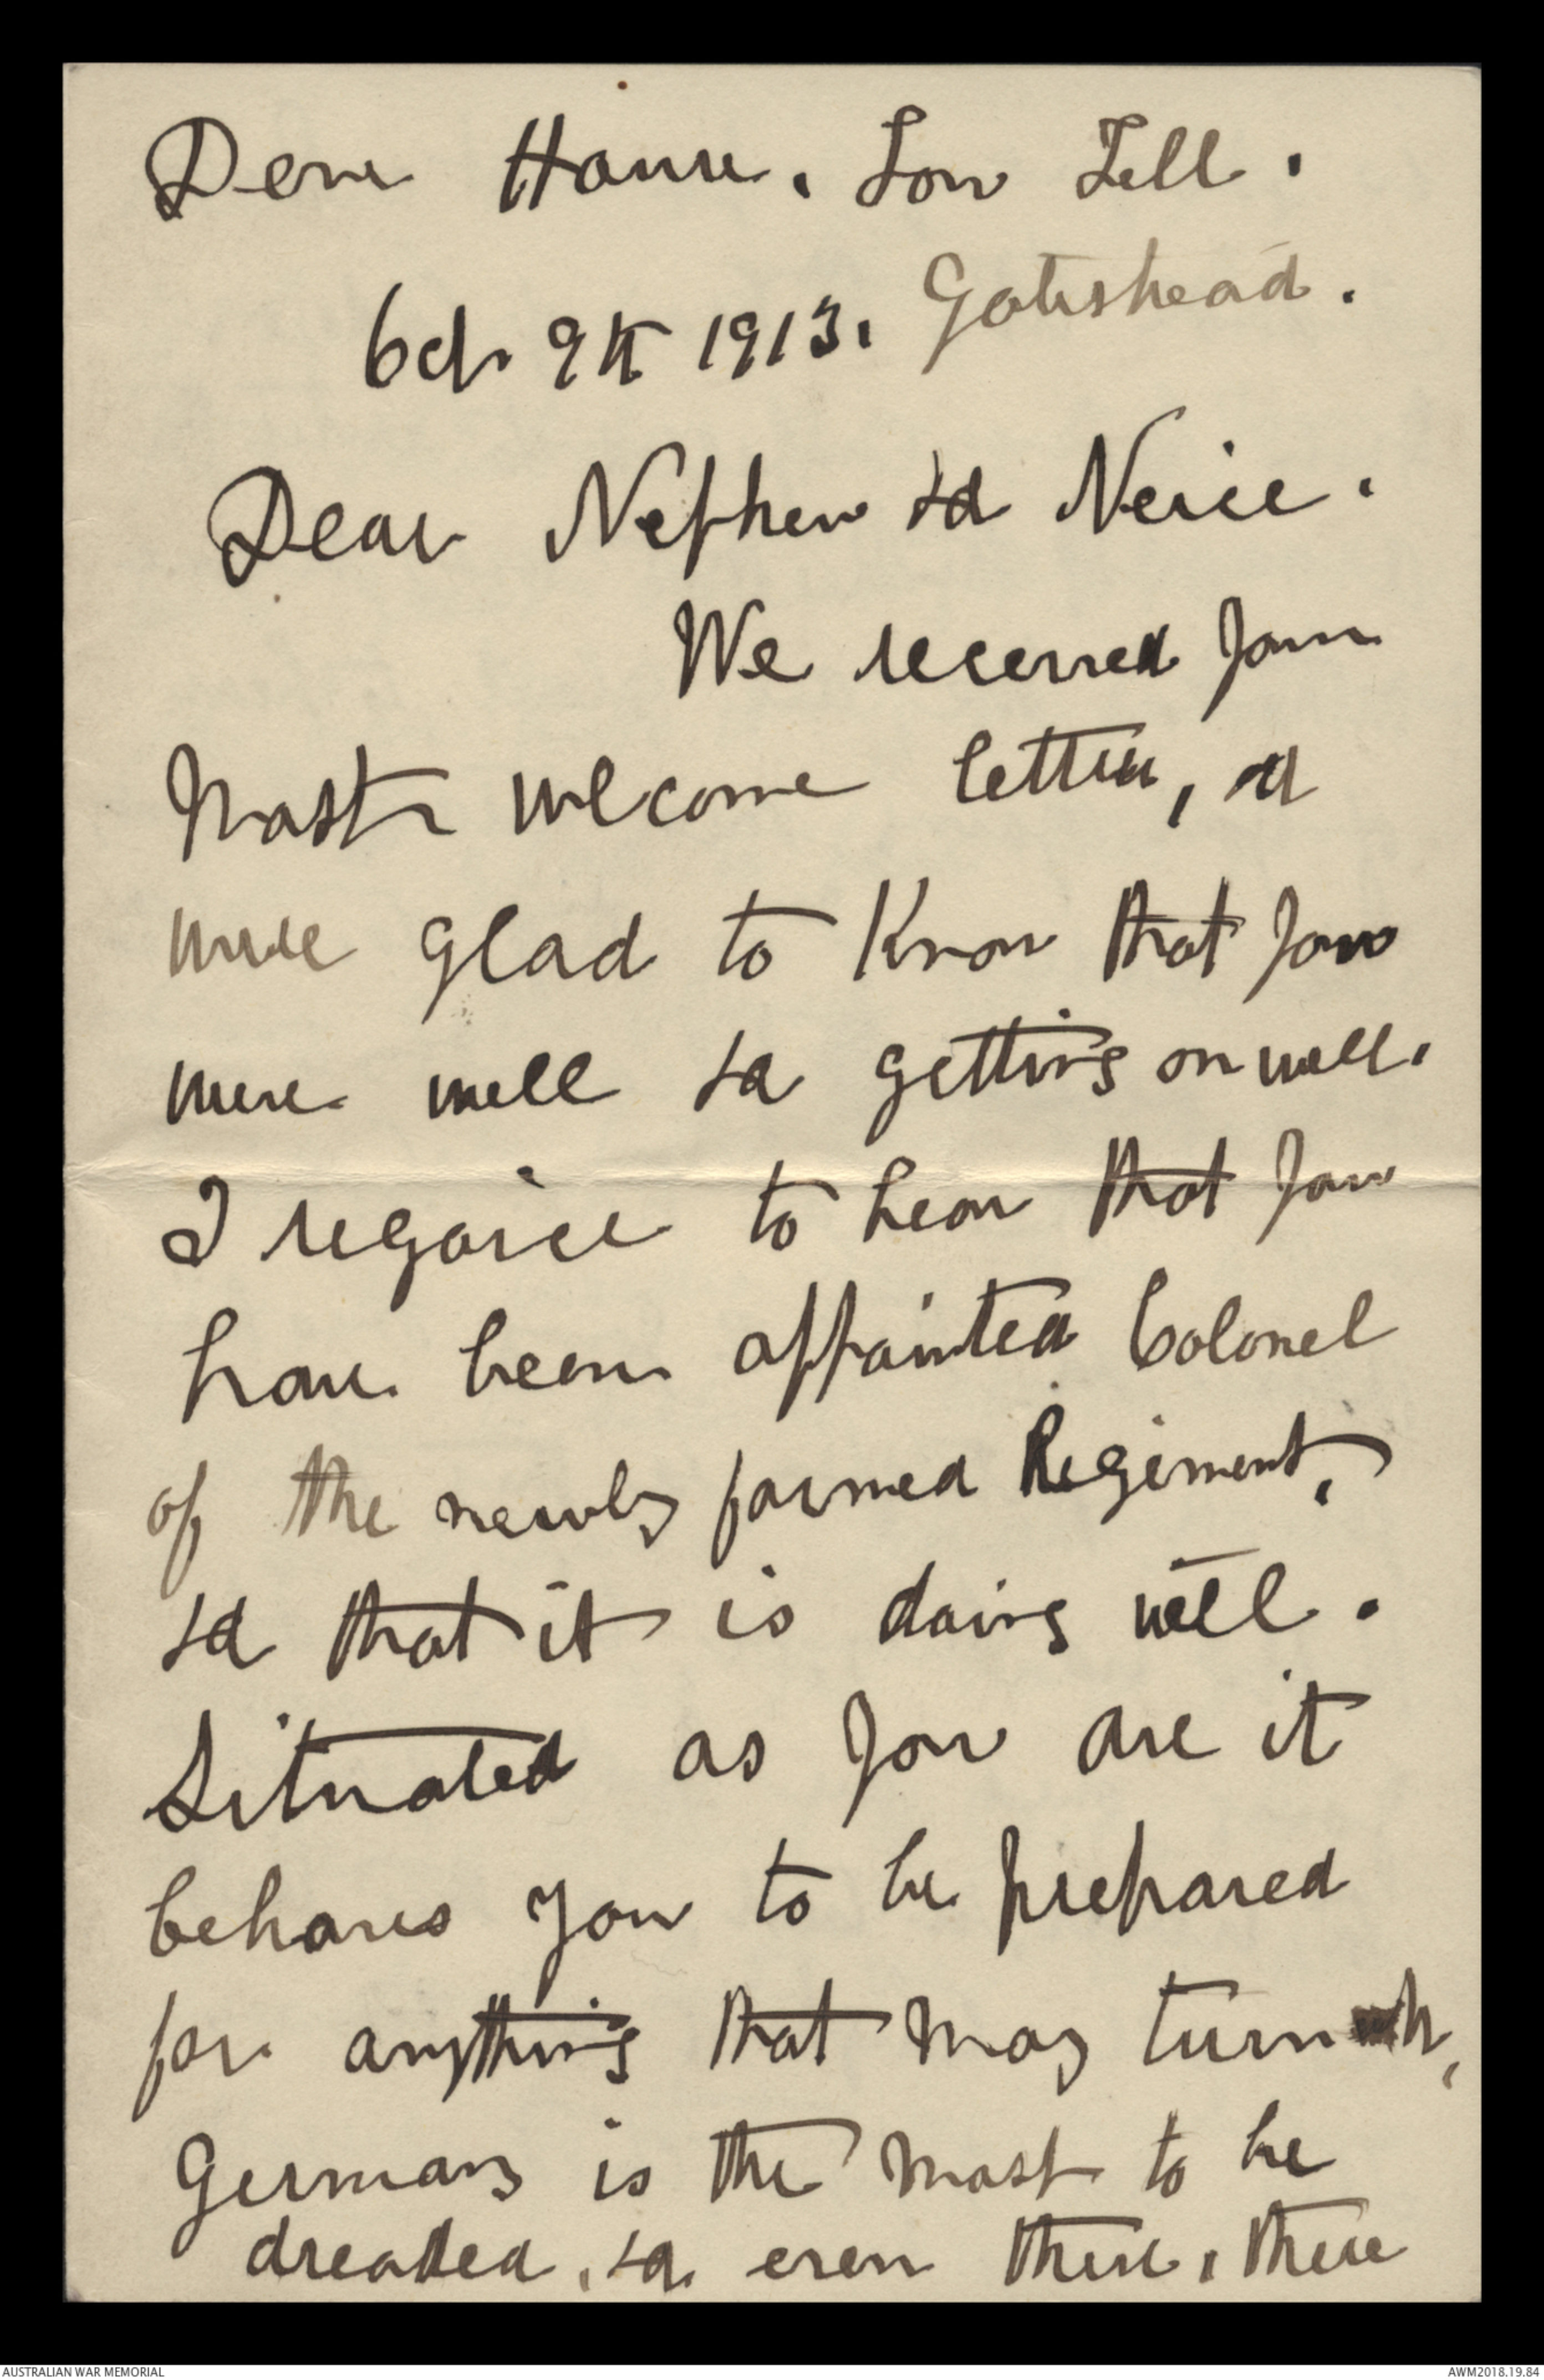 Dene House. Low Fell.
Gateshead.
Oct. 9th 1913.
Dear Nephew & Neice.
We received your
most welcome letter, &
were glad to know that you
were well & getting on well.
I regoice to hear that you
have been appointed Colonel
of the newly formed Regiment,
& that it is doing well.
Situated as you are it
behoves you to be prepared
for anything that may turn up,
Germany is the most to be
dreaded, & even there, there
AUSTRALIAN WAR MEMORIAL
AWM2018.19.84